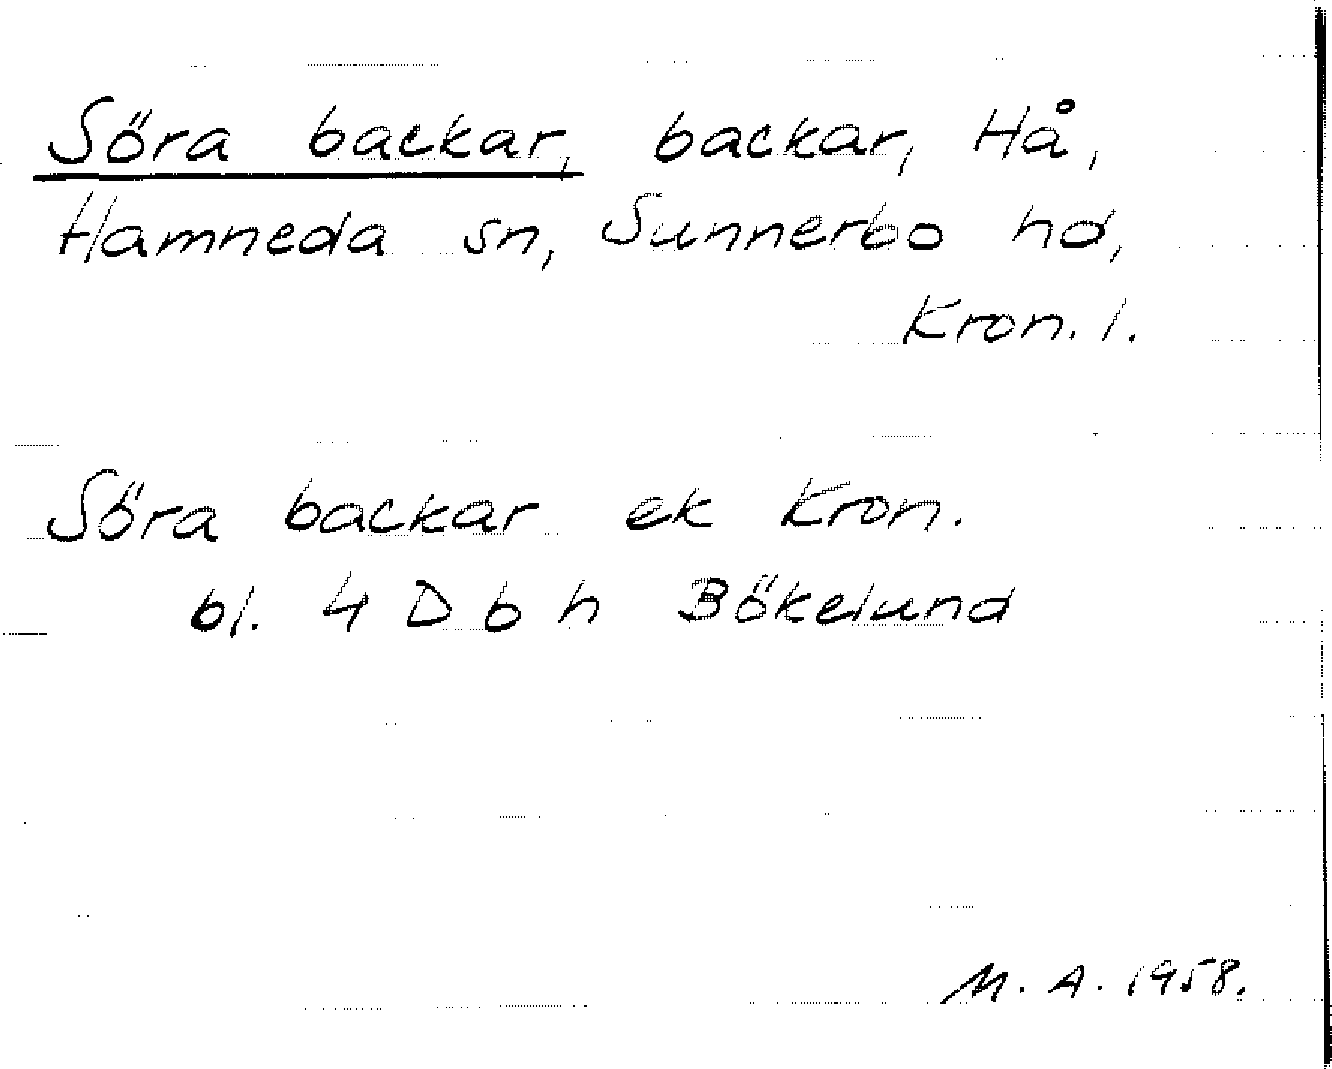 Söra backar, backar, Hå,
Hamneda sn, Sunnerbo hd,
Kron. l.
Söra backar ek Kron.
bl. 4 D b h Bökelund
M. A. 1958.